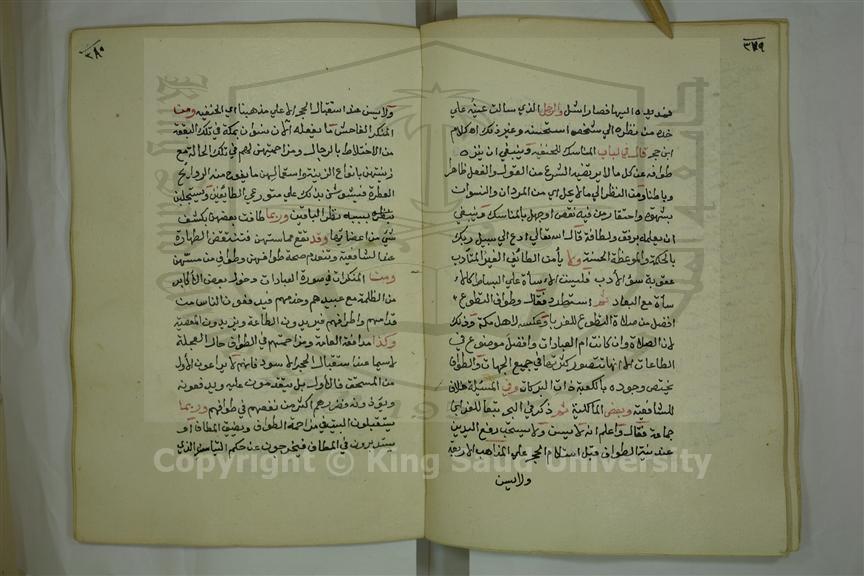 ٣٧٩
فمد يده اليها فصار اشل والرجل الذي سالت عينه علي
خده من نظره الي شخص استحسنه وغير ذلك اه كلام
ابن حجر قال في لباب المناسك للحنفيه وينبغي ان ينزه
طوافه عن كل ما لا يرتضيه الشرع من القول والفعل ظاهرا
وباطنا ومن النظر الي ما لا يحل اي من المردان والنسوان
بشهوة واحتقار من فيه نقص او جهل بالمناسك وينبغي
ان يعلمه برفق ولطافة قال الله تعالي ادع الي سبيل ربك
بالحكمة والموعظة الحسنة ولا يأمن الطائف الغير المتأدب
عقوبة سوء الأدب فليست الاسأة علي البساط كالا
سأة مع البعاد ثم استطرد فقال وطواف التطوع
افضل من صلاة التطوع للغربا وعكسه لاهل مكة وذلك
لان الصلاة وان كانت ام العبادات وافضل موضوع في
الطاعات الا انها تتصور كثرتها في جميع الجهات والطواف
يختص وجوده بالكعبة ذات البركات وفي المسئلة خلاف
للشافعية وبعض المالكية ثم ذكر في النبي تبعا للغزالي
جماعة فقال واعلم انه لا يسن ولا يستحب رفع اليدين
عند نية الطواف قبل استلام الحجر علي المذاهب الاربعة
ولا يسن
٣٨٠
ولا يسن عند استقبال الحجر الا علي مذهبنا اي الحنفيه ومن
المنكر الفاحش ما يفعله الآن نسوان بمكة في تلك البقعة
من الاختلاط بالرجال ومزاحمتهن لهم في تلك الحالة مع
زينتهن بانواع الزينة واستعمالهن ما يفوح منه الروايح
العطرة فيشوشن بذلك علي متورعي الطائفين ويستجلبن
بسببه نظر الباقين وربما طافت بعضهن بكشف
شيء من اعضائها وقد تقع مماستهن فتنتقض الطهارة
عند الشافعية وتنعدم صحة طوافهن وطواف من مسهن
ومن المنكرات في صورة العبادات دخول بعض الأكابر
من الظلمة مع عبيدهم وخدمهم فيدفعون الناس من
قدامهم واطرافهم فيريدون الطاعة ويزيدون المعصية
وكذا مدافعة العامة ومزاحمتهم في الطواف حال العجلة
لا سيما عند استقبال الحجر الاسود فانهم لا يراعون الأول
من المستحق فالأول بل يتقدمون عليه ويدفعونه
ويؤذونه فضررهم اكثر من نفعهم في طوافهم وربما
يستقبلون البيت في مزاحمة الطواف وبضيق المطاف او
يستدبرون في المطاف فيخرجون عن حكم التياسر الذي
Copyright © King Saud University